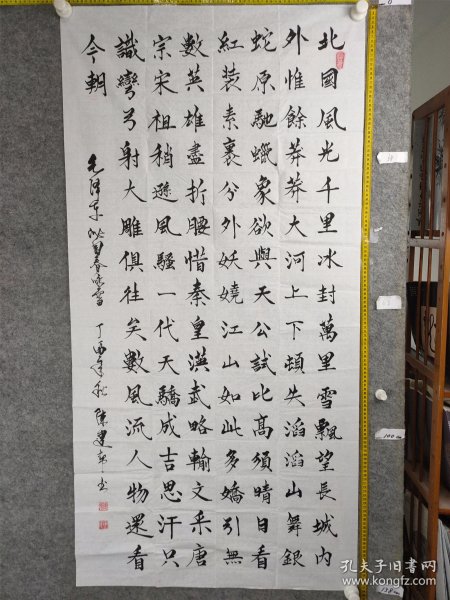 北國風光千里冰封萬里雪飄望長城內
外惟餘莽莽大河上下頓失滔滔山舞銀
蛇原馳蠟象欲與天公試比高須晴日看
紅装素裹分外妖嬈江山如此多嬌引無
數英雄盡折腰惜秦皇漢武略輸文采唐
宗宋祖稍遜風騷一代天驕成吉思汗只
識彎弓射大雕俱往矣數風流人物還看
今朝
毛泽东沁園春咏雪 丁酉年秋 陳建軍书
孔夫子旧书网
www.kongfz.com